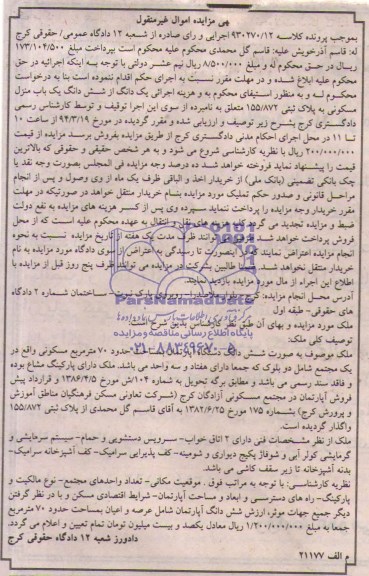 آگهی مزایده اموال غیرمنقول
بموجب پرونده کلاسه ۹۳۰۲۷۰/۱۲ اجرایی و رای صادره از شعبه ۱۲ دادگاه عمومی/ حقوقی کرج
له: قاسم آذرخویش علیه: قاسم گل محمدی محکوم علیه محکوم است بپرداخت مبلغ ۱۷۳/۱۰۴/۵۰۰
ریال در حق محکوم له و مبلغ ۸/۵۰۰/۰۰۰ ریال نیم عشر دولتی با توجه به اینکه اجرائیه در حق
محکوم علیه ابلاغ شده و در مهلت مقرر نسبت به اجرای حکم اقدام ننموده است بنا به درخواست
محکوم له و به منظور استیفای محکوم به و هزینه اجرائی یک دانگ از شش دانگ یک باب منزل
مسکونی به پلاک ثبتی ۱۵۵/۸۷۲ متعلق به نامبرده از سوی این اجرا توقیف و توسط کارشناس رسمی
دادگستری کرج بشرح زیر توصیف و ارزیابی شده و مقرر گردیده در مورخ ۹۴/۳/۱۹ از ساعت ۱۰
تا ۱۱ در محل اجرای احکام مدنی دادگستری کرج از طریق مزایده بفروش برسد مزایده از قیمت
۲۰۰/۰۰۰/۰۰۰ ریال با نظریه کارشناسی شروع می شود و به هر شخص حقیقی و حقوقی که بالاترین
قیمت را پیشنهاد نماید فروخته خواهد شد ده درصد وجه مزایده فی المجلس بصورت وجه نقد یا
چک بانکی تضمینی (بانک ملی) از خریدار اخذ و الباقی ظرف یک ماه از وی وصول و پس از انجام
مراحل قانونی و صدور حکم تملیک مورد مزایده بنام خریدار منتقل خواهد در صورتیکه در مهلت
مقرر خریدار وجه مزایده را پرداخت ننماید سپرده وی پس از کسر هزینه های مزایده به نفع دولت
ضبط و مزایده تجدید می گردد کلیه هزینه های نقل و انتقال به عهده محکوم علیه است که از محل
فروش پرداخت خواهد شد طرفین می توانند ظرف مدت یک هفته از تاریخ مزایده نسبت به نحوه
انجام مزایده اعتراض نمایند که در اینصورت تا رسیدگی به اعتراض از سوی دادگاه مورد مزایده به نام
خریدار منتقل نخواهد شد. ضمنا طالبین شرکت در مزایده می توانند ظرف پنج روز قبل از مزایده با
اطلاع این اجراء از مال مورد مزایده بازدید نمایند.
آدرس محل انجام مزایده: کرج روبروی پارک نبوت - ساختمان شماره ۲ دادگاه
های حقوقی- طبقه اول
ملک مورد مزایده و بهای آن طبق نظر کارشناس بدین شرح است:
توصیف کلی ملک:
ملک موضوع به صورت شش دانگ دستگاه آپارتمان بمساحت حدود ۷۰ مترمربع مسکونی واقع در
یک مجتمع شامل دو بلوک که جمعا دارای هفتاد و سه واحد می باشد. ملک دارای پارکینگ مشاع بوده
و فاقد سند رسمی می باشد و مطابق برگه تحویل به شماره ۱۰۴/ش مورخ ۱۳۸۶/۴/۵ و قرارداد پیش
فروش آپارتمان در مجتمع مسکونی آزادگان کرج (شرکت تعاونی مسکن فرهنگیان مناطق آموزش
و پرورش کرج) بشماره ۱۷۵ مورخ ۱۳۸۲/۶/۲۵ به آقای قاسم گل محمدی از پلاک ثبتی ۱۵۵/۸۷۲
واگذار گردیده است.
ملک از نظر مشخصات فنی دارای ۲ اتاق خواب- سرویس دستشویی و حمام- سیستم سرمایشی و
گرمایشی کولر آبی و شوفاژ پکیج دیواری و شومینه- کف پذیرایی سرامیک- کف آشپزخانه سرامیک-
بدنه آشپزخانه تا زیر سقف کاشی می باشد.
نظریه کارشناسی: با توجه به مراتب فوق . موقعیت مکانی- تعداد واحدهای مجتمع- نوع مالکیت و
پارکینگ- راه های دسترسی و ابعاد و مساحت آپارتمان- شرایط اقتصادی مسکن و با در نظر گرفتن
دیگر جمیع جهات موثر، ارزش شش دانگ آپارتمان شامل عرصه و اعیان بمساحت حدود ۷۰ مترمربع
جمعا به مبلغ ۱/۲۰۰/۰۰۰/۰۰۰ ریال معادل یکصد و بیست میلیون تومان تمام تعیین و اعلام می گردد.
دادورز شعبه ۱۲ دادگاه حقوقی کرج
م الف ۲۱۱۷۷
ParsNamadData
پایگاه اطلاع رسانی مناقصه و مزایده
۰۲۱-۸۸۳۴۹۶۷۰-۵